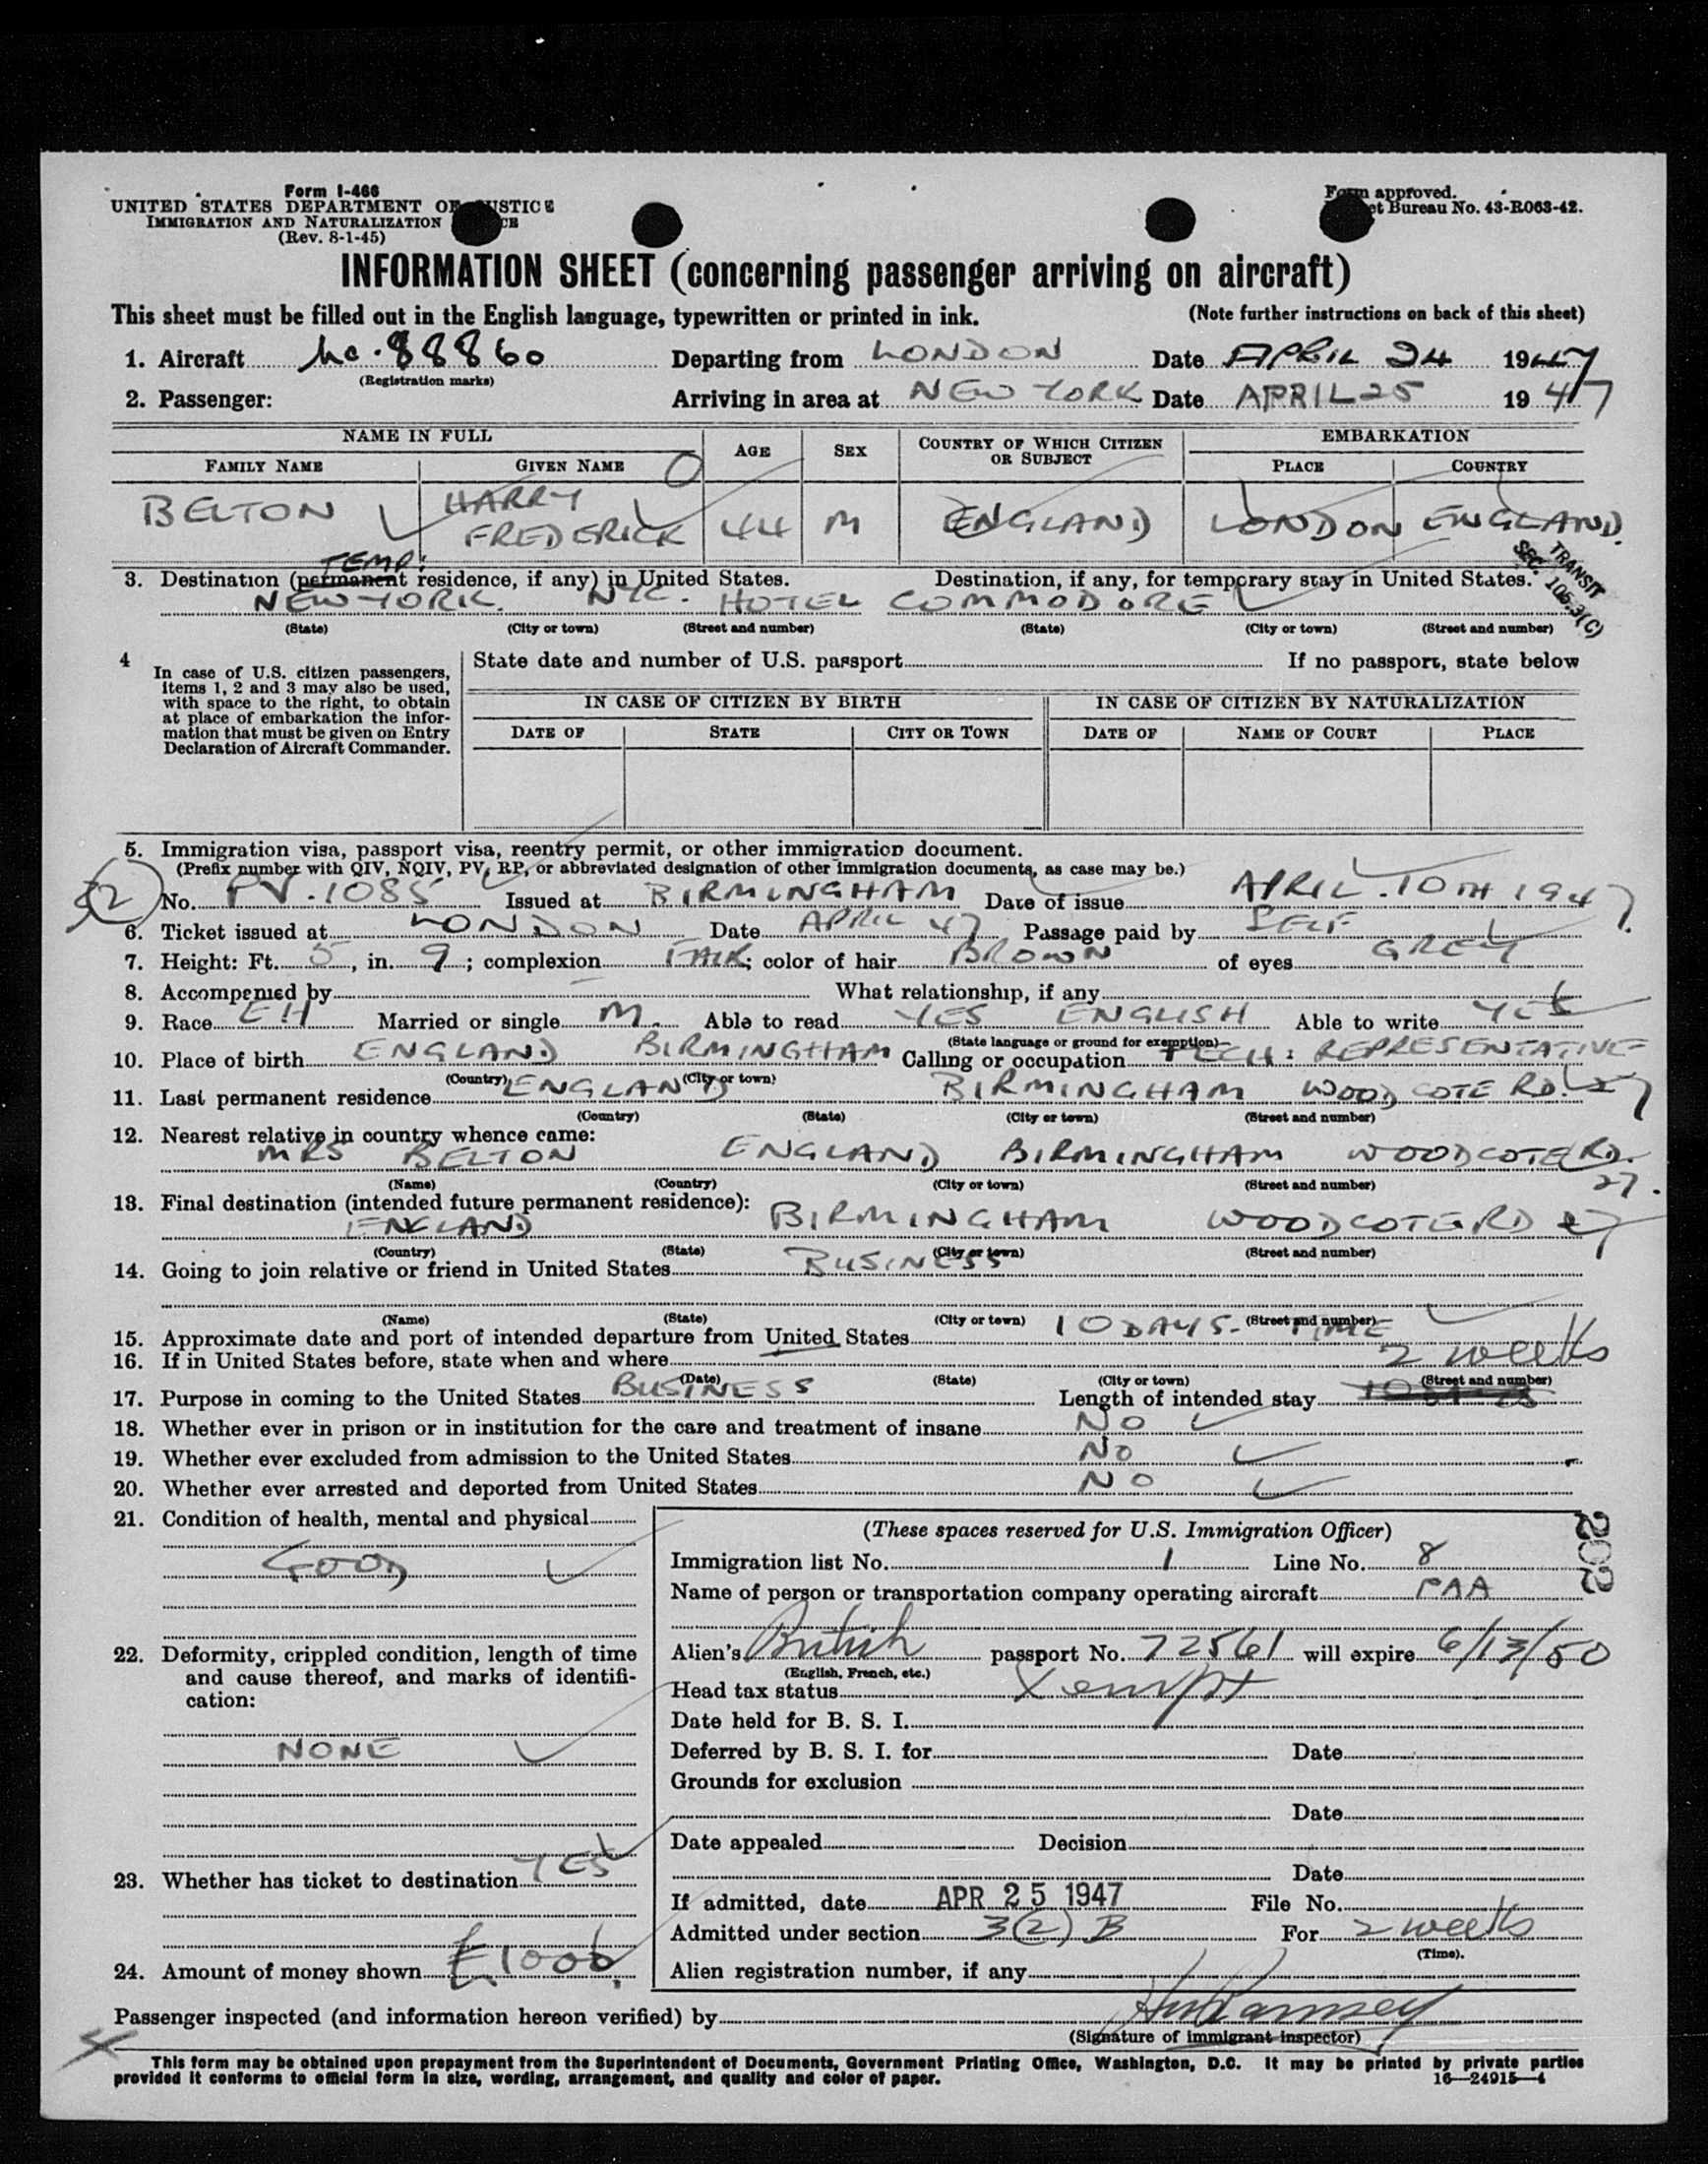 Form I-466
UNITED STATES DEPARTMENT OF JUSTICE
IMMIGRATION AND NATURALIZATION
(Rev. 8-1-45)
Form approved.
Bureau No. 43-R063-42.
INFORMATION SHEET (concerning passenger arriving on aircraft)
This sheet must be filled out in the English language, typewritten or printed in ink. (Note further instructions on back of this sheet)
1. Aircraft Nc. 88860 Departing from LONDON Date APRIL 24 1947
(Registration marks)
2. Passenger: Arriving in area at NEW YORK Date APRIL 25 1947
NAME IN FULL AGE SEX COUNTRY OF WHICH CITIZEN OR SUBJECT EMBARKATION
FAMILY NAME GIVEN NAME PLACE COUNTRY
BELTON HARRY FREDERICK 44 M ENGLAND LONDON ENGLAND.
TEMP:
3. Destination (permanent residence, if any) in United States. Destination, if any, for temporary stay in United States.
TRANSIT
SEC. 105.3(C)
NEW YORK. NYC. HOTEL COMMODORE
(State) (City or town) (Street and number) (State) (City or town) (Street and number)
4 In case of U.S. citizen passengers,
items 1, 2 and 3 may also be used,
with space to the right, to obtain
at place of embarkation the infor-
mation that must be given on Entry
Declaration of Aircraft Commander.
State date and number of U.S. passport If no passport, state below
IN CASE OF CITIZEN BY BIRTH IN CASE OF CITIZEN BY NATURALIZATION
DATE OF STATE CITY OR TOWN DATE OF NAME OF COURT PLACE
5. Immigration visa, passport visa, reentry permit, or other immigration document.
(Prefix number with QIV, NQIV, PV, RP, or abbreviated designation of other immigration documents, as case may be.)
No. PV. 1085 Issued at BIRMINGHAM Date of issue APRIL. 10TH 1947.
6. Ticket issued at LONDON Date APRIL 47 Passage paid by SELF
7. Height: Ft. 5, in. 9; complexion FAIR; color of hair BROWN of eyes GREY
8. Accompanied by What relationship, if any
9. Race Married or single M. Able to read YES ENGLISH Able to write YES
(State language or ground for exemption)
10. Place of birth ENGLAND BIRMINGHAM Calling or occupation TECH: REPRESENTATIVE
(Country) (City or town)
11. Last permanent residence ENGLAND BIRMINGHAM WOODCOTE RD. 27
(Country) (State) (City or town) (Street and number)
12. Nearest relative in country whence came:
MRS BELTON ENGLAND BIRMINGHAM WOODCOTE RD. 27.
(Name) (Country) (City or town) (Street and number)
13. Final destination (intended future permanent residence):
ENGLAND BIRMINGHAM WOODCOTE RD 27
(Country) (State) (City or town) (Street and number)
14. Going to join relative or friend in United States BUSINESS
(Name) (State) (City or town) (Street and number)
15. Approximate date and port of intended departure from United States 10 DAYS. TIME
16. If in United States before, state when and where
(Date) (State) (City or town) (Street and number)
2 weeks
17. Purpose in coming to the United States BUSINESS Length of intended stay
18. Whether ever in prison or in institution for the care and treatment of insane NO
19. Whether ever excluded from admission to the United States NO
20. Whether ever arrested and deported from United States NO
21. Condition of health, mental and physical
GOOD
22. Deformity, crippled condition, length of time
and cause thereof, and marks of identifi-
cation:
NONE
23. Whether has ticket to destination YES
24. Amount of money shown
(These spaces reserved for U.S. Immigration Officer)
202
Immigration list No. 1 Line No. 8
Name of person or transportation company operating aircraft PAA
Alien's British passport No. 72561 will expire 6/13/50
(English, French, etc.)
Head tax status Xempt
Date held for B. S. I.
Deferred by B. S. I. for Date
Grounds for exclusion
Date
Date appealed Decision
Date
If admitted, date APR 25 1947 File No.
Admitted under section 3(2) B For 2 weeks
(Time).
Alien registration number, if any
Passenger inspected (and information hereon verified) by
(Signature of immigrant inspector)
This form may be obtained upon prepayment from the Superintendent of Documents, Government Printing Office, Washington, D.C. It may be printed by private parties
provided it conforms to official form in size, wording, arrangement, and quality and color of paper. 16—24915-4